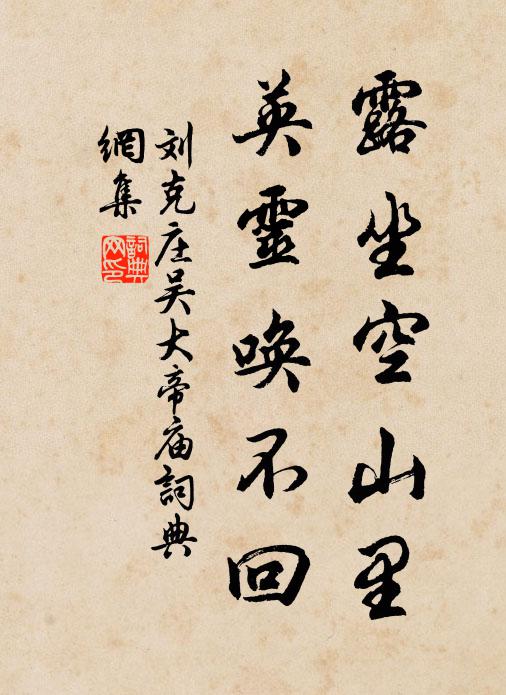 露坐空山里
英靈唤不回
刘克庄吴大帝庙詞典
網集
詞典
网印